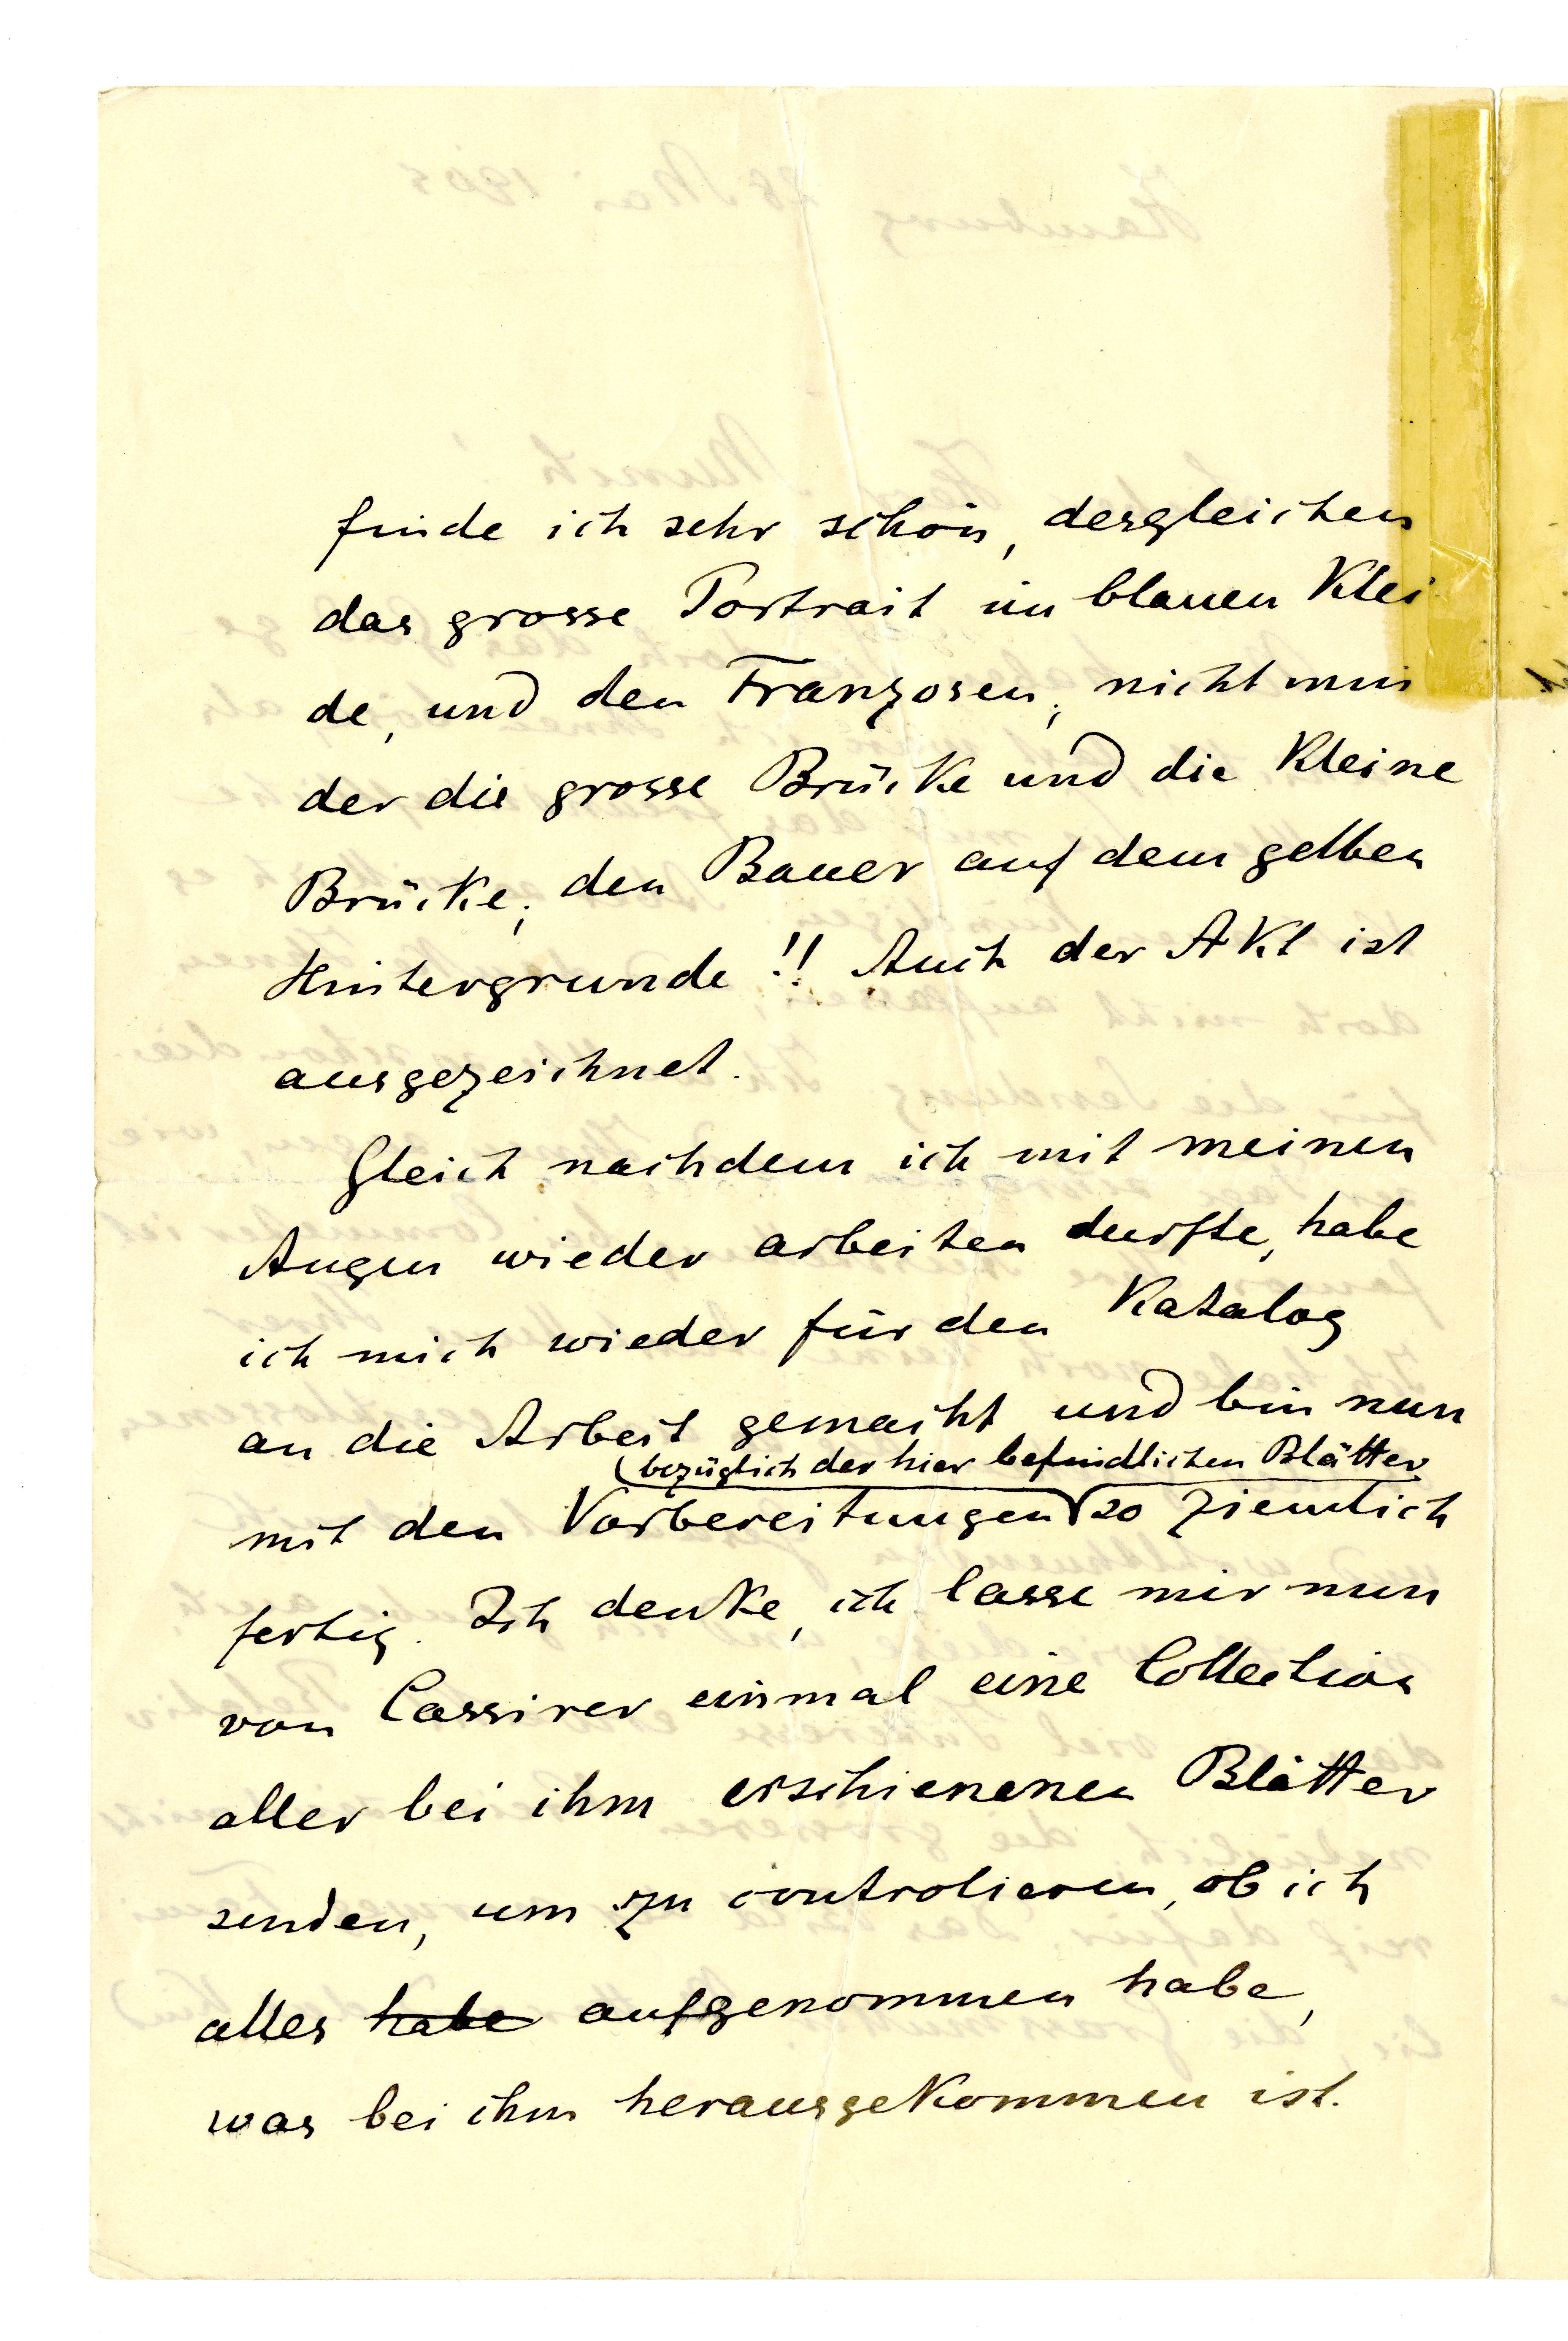 finde ich sehr schön, desgleichen
das grosse Portrait im blauen Klei
de, und den Franzosen; nicht min
der die grosse Brücke und die Kleine
Brücke; den Bauer auf dem gelben
Hintergrunde!! Auch der Akt ist
ausgezeichnet.
Gleich nachdem ich mit meinen
Augen wieder arbeiten durfte, habe
ich mich wieder für den Katalog
an die Arbeit gemacht und bin nun
(bezüglich der hier befindlichen Blätter
mit den Vorbereitungen so ziemlich
fertig. Ich denke, ich lasse mir nun
von Cassirer einmal eine Collection
aller bei ihm erschienenen Blätter
senden, um zu controlieren, ob ich
alles habe aufgenommen habe,
was bei ihm herausgekommen ist.